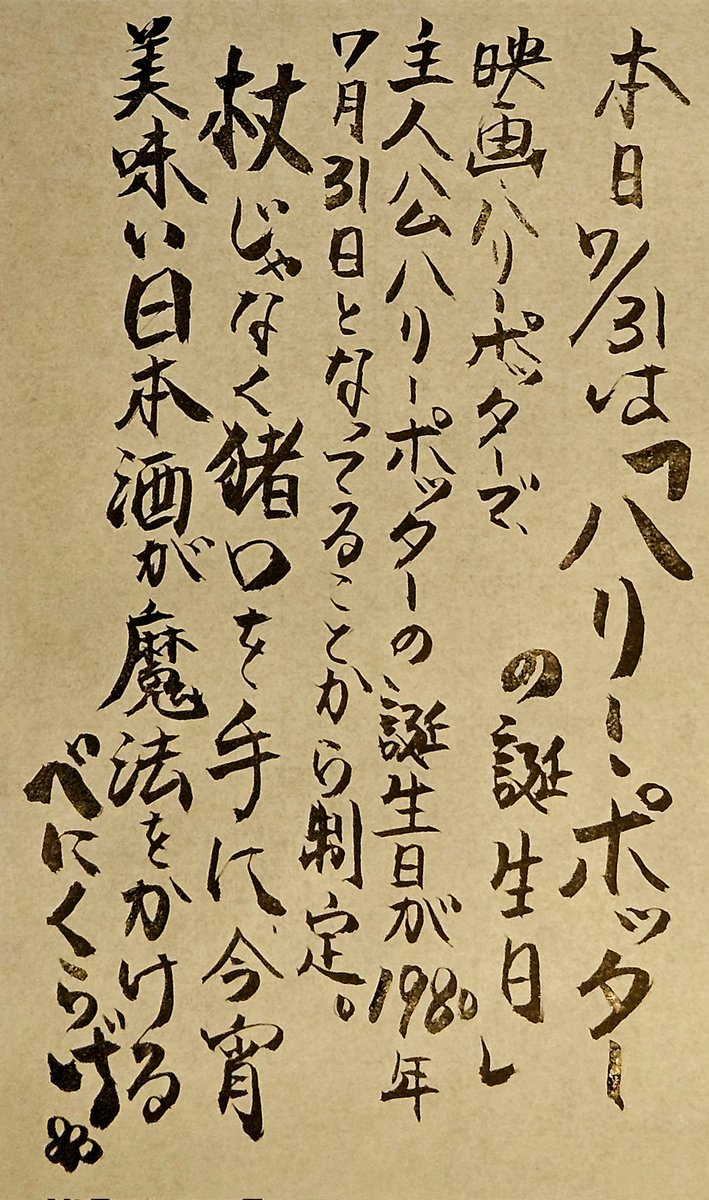 本日7/31は「ハリー・ポッター
の誕生日」
映画ハリーポッターで、
主人公ハリーポッターの誕生日が1980年
7月31日となってることから制定。
杖じゃなく猪口を手に、今宵
美味い日本酒が魔法をかける
べにくらげ